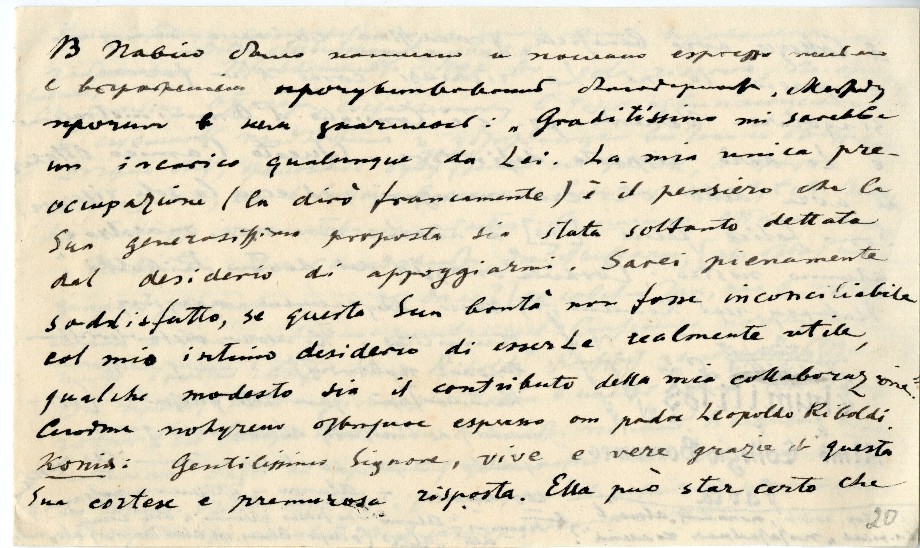 В Nabiro было написано и послано espresso
с выражением благодарности,
прочим в нем значилось: „Graditissimo mi sarebbe
un incarico qualunque da Lei. La mia unica pre-
occupazione (la dirò francamente) è il pensiero che la
Sua generosissima proposta sia stata soltanto dettata
dal desiderio di appoggiarmi. Sarei pienamente
soddisfatto, se questa Sua bontà non fosse inconciliabile
col mio intimo desiderio di esserLe realmente utile,
qualche modesto sia il contributo della mia collaborazione".
получено espresso от padre Leopoldo Riboldi.
Копия: Gentilissimo Signore, vive e vere grazie di questa
Sua cortese e premurosa risposta. Ella può star certo che
20